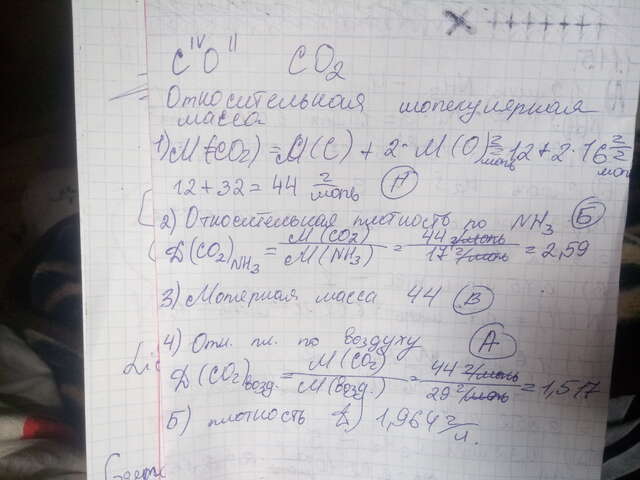 IV II
C O CO₂
Относительная молекулярная
масса
1) M(CO₂) = M(C) + 2 · M(O) г/моль = 12 + 2 · 16 г/моль
12 + 32 = 44 г/моль
2) Относительная плотность по NH₃ Б
D(CO₂)NH₃ = M(CO₂)/M(NH₃) = 44 г/моль/17 г/моль = 2,59
3) Молярная масса 44 В
4) Отн. пл. по воздуху А
D(CO₂)возд. = M(CO₂)/M(возд.) = 44 г/моль/29 г/моль = 1,517
Б) плотность Д) 1,964 г/л.